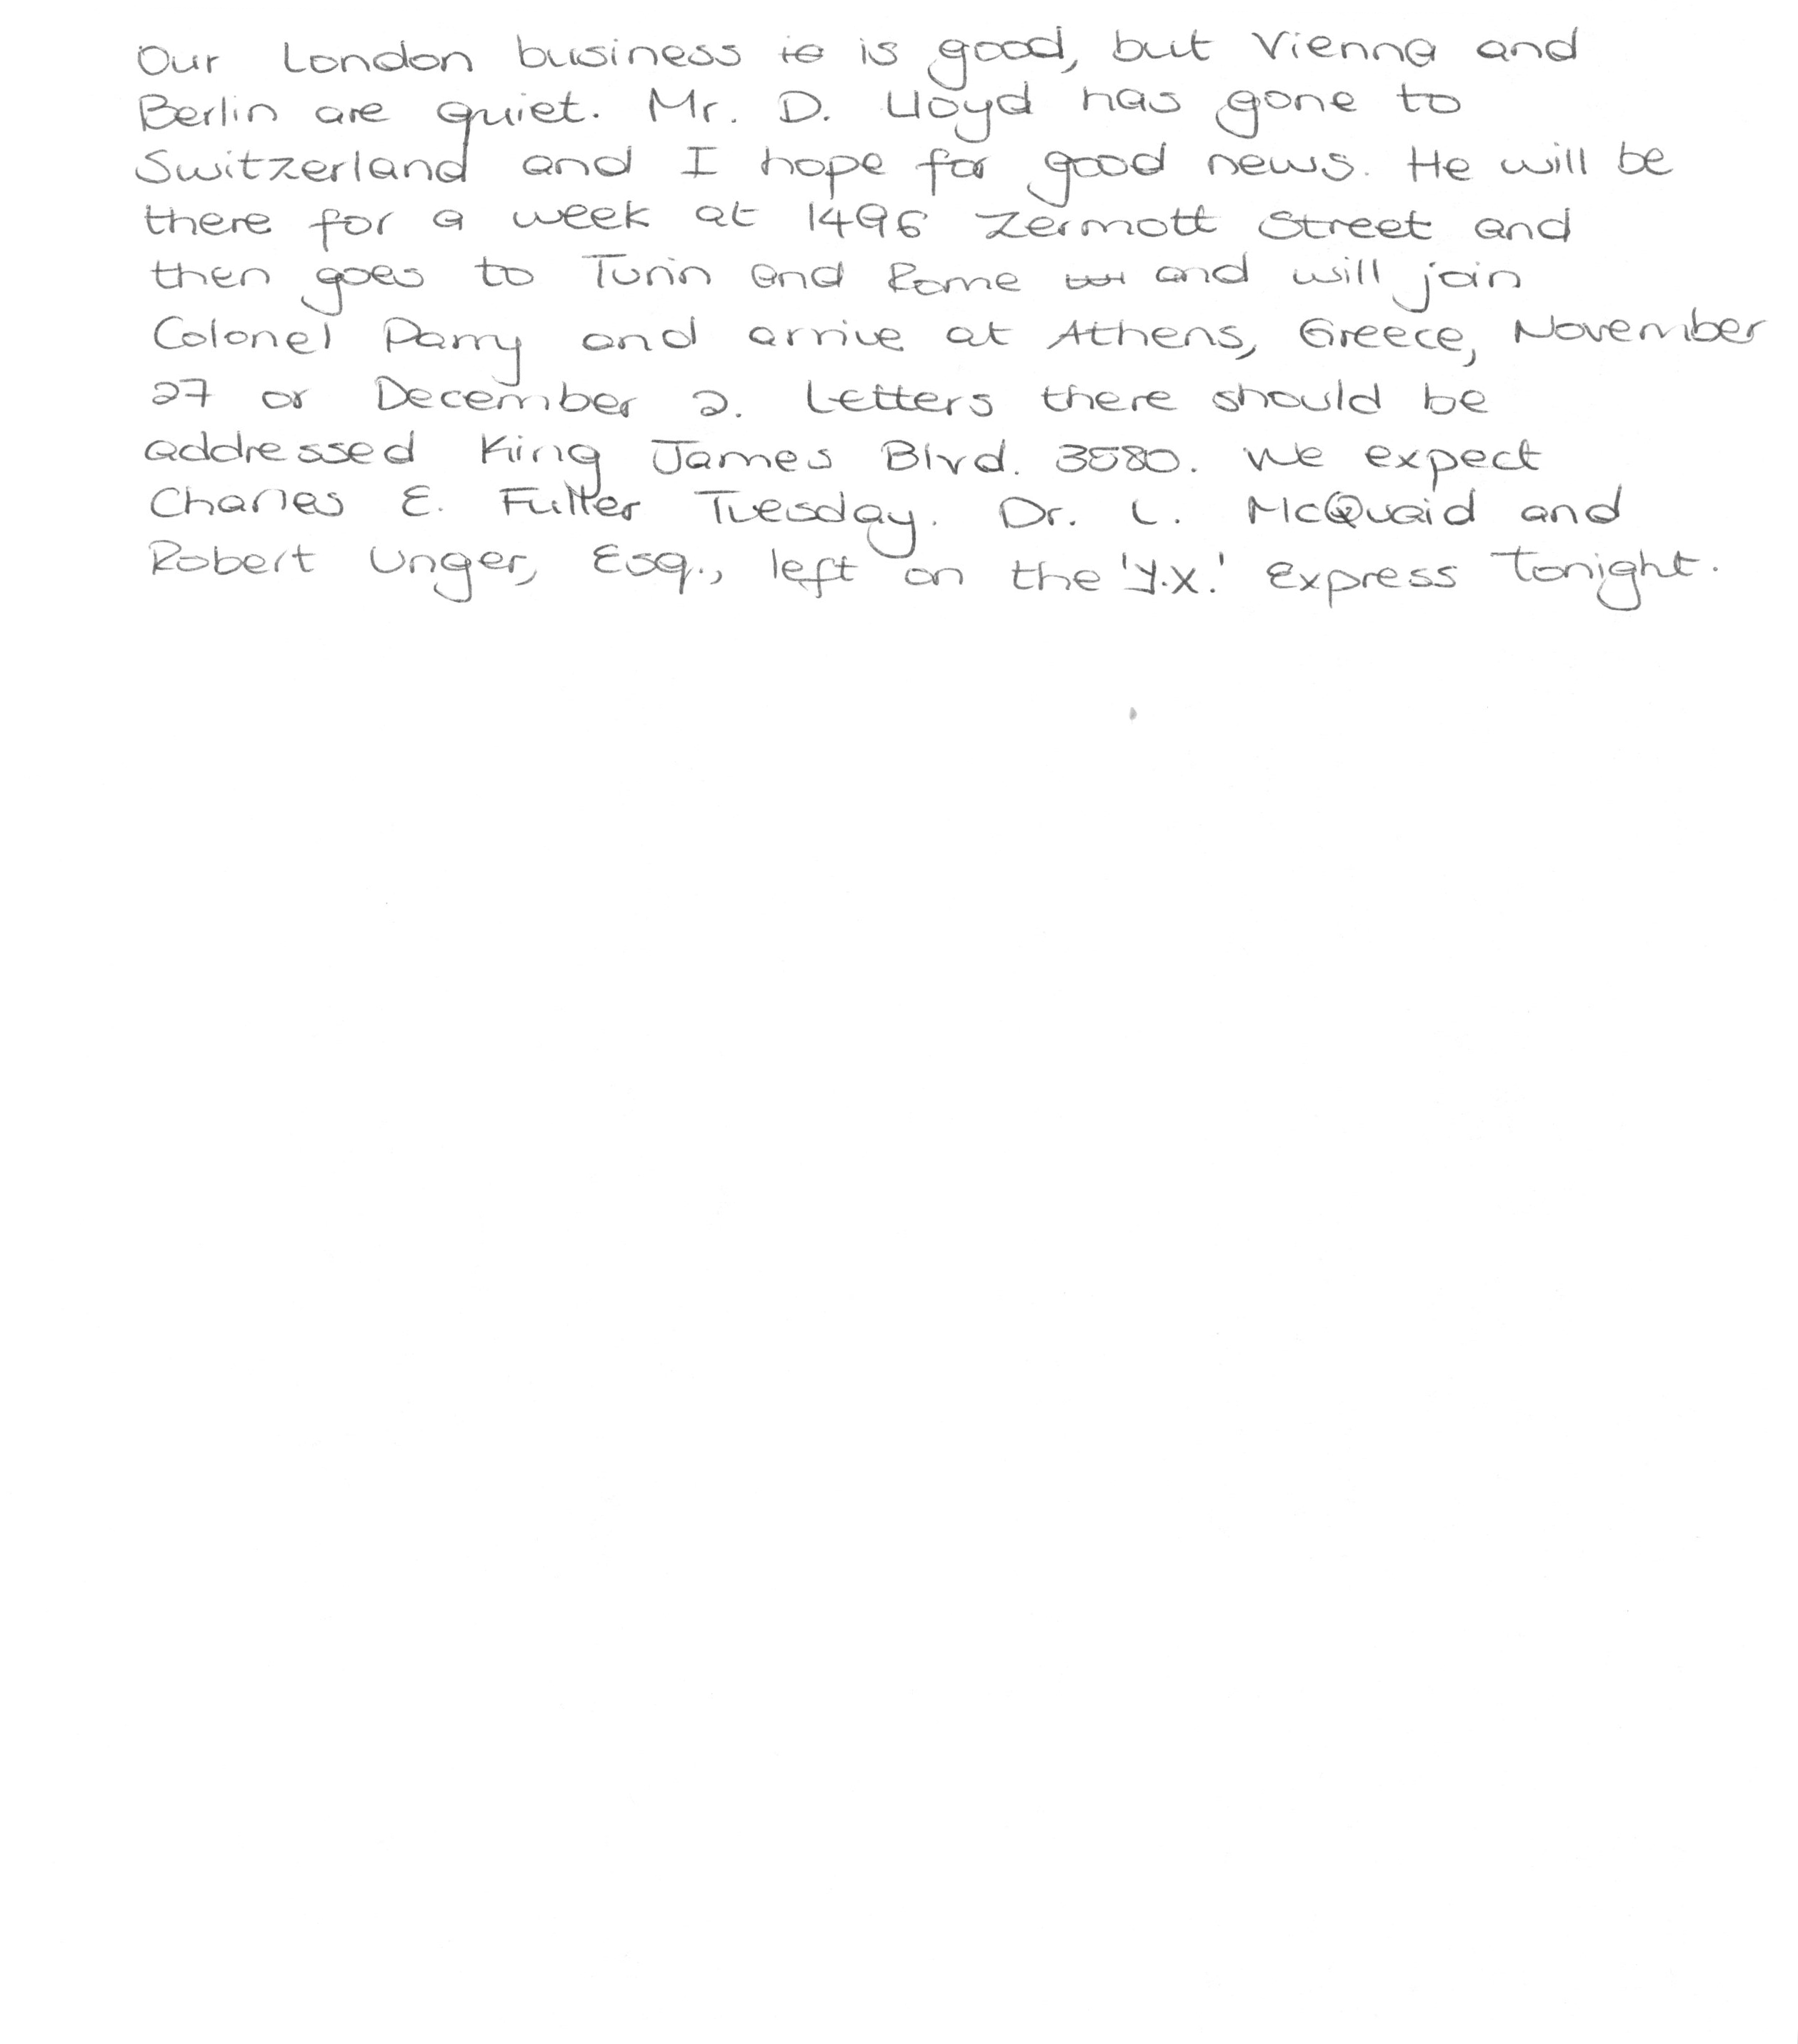 Our London business is good, but Vienna and
Berlin are quiet. Mr. D. Lloyd has gone to
Switzerland and I hope for good news. He will be
there for a week at 1496 Zermott Street and
then goes to Turin and Rome and will join
Colonel Parry and arrive at Athens, Greece, November
27 or December 2. Letters there should be
addressed King James Blvd. 3580. We expect
Charles E. Fuller Tuesday. Dr. L. McQuaid and
Robert Unger, Esq., left on the 'Y.X.' Express Tonight.